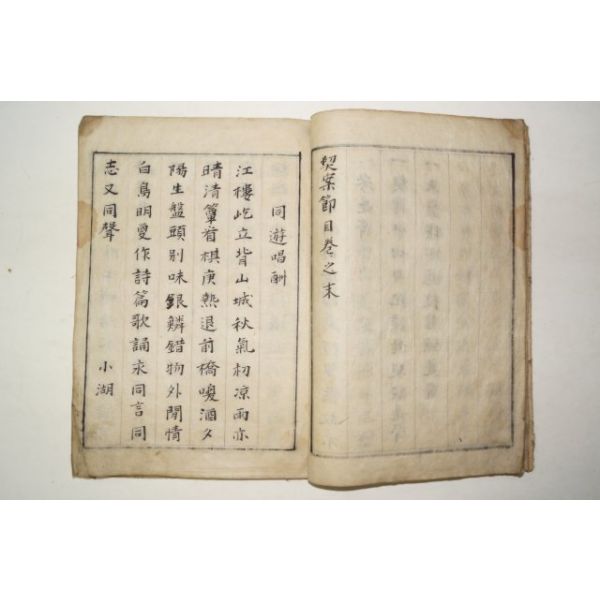 契案節目卷之末
同遊唱酬
江樓屹立背山城秋氣初凉雨亦
晴清簟看棋庚熱退前橋喚酒夕
陽生盤頭別味銀鱗錯物外閒情
白鳥明更作詩篇歌誦永同言同
志又同聲 小湖